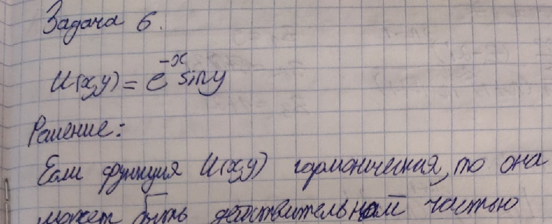 Задача 6.
U(x,y) = e^{-x} sin y
Решение:
Если функция U(x,y) гармоническая, то она
может быть действительной частью